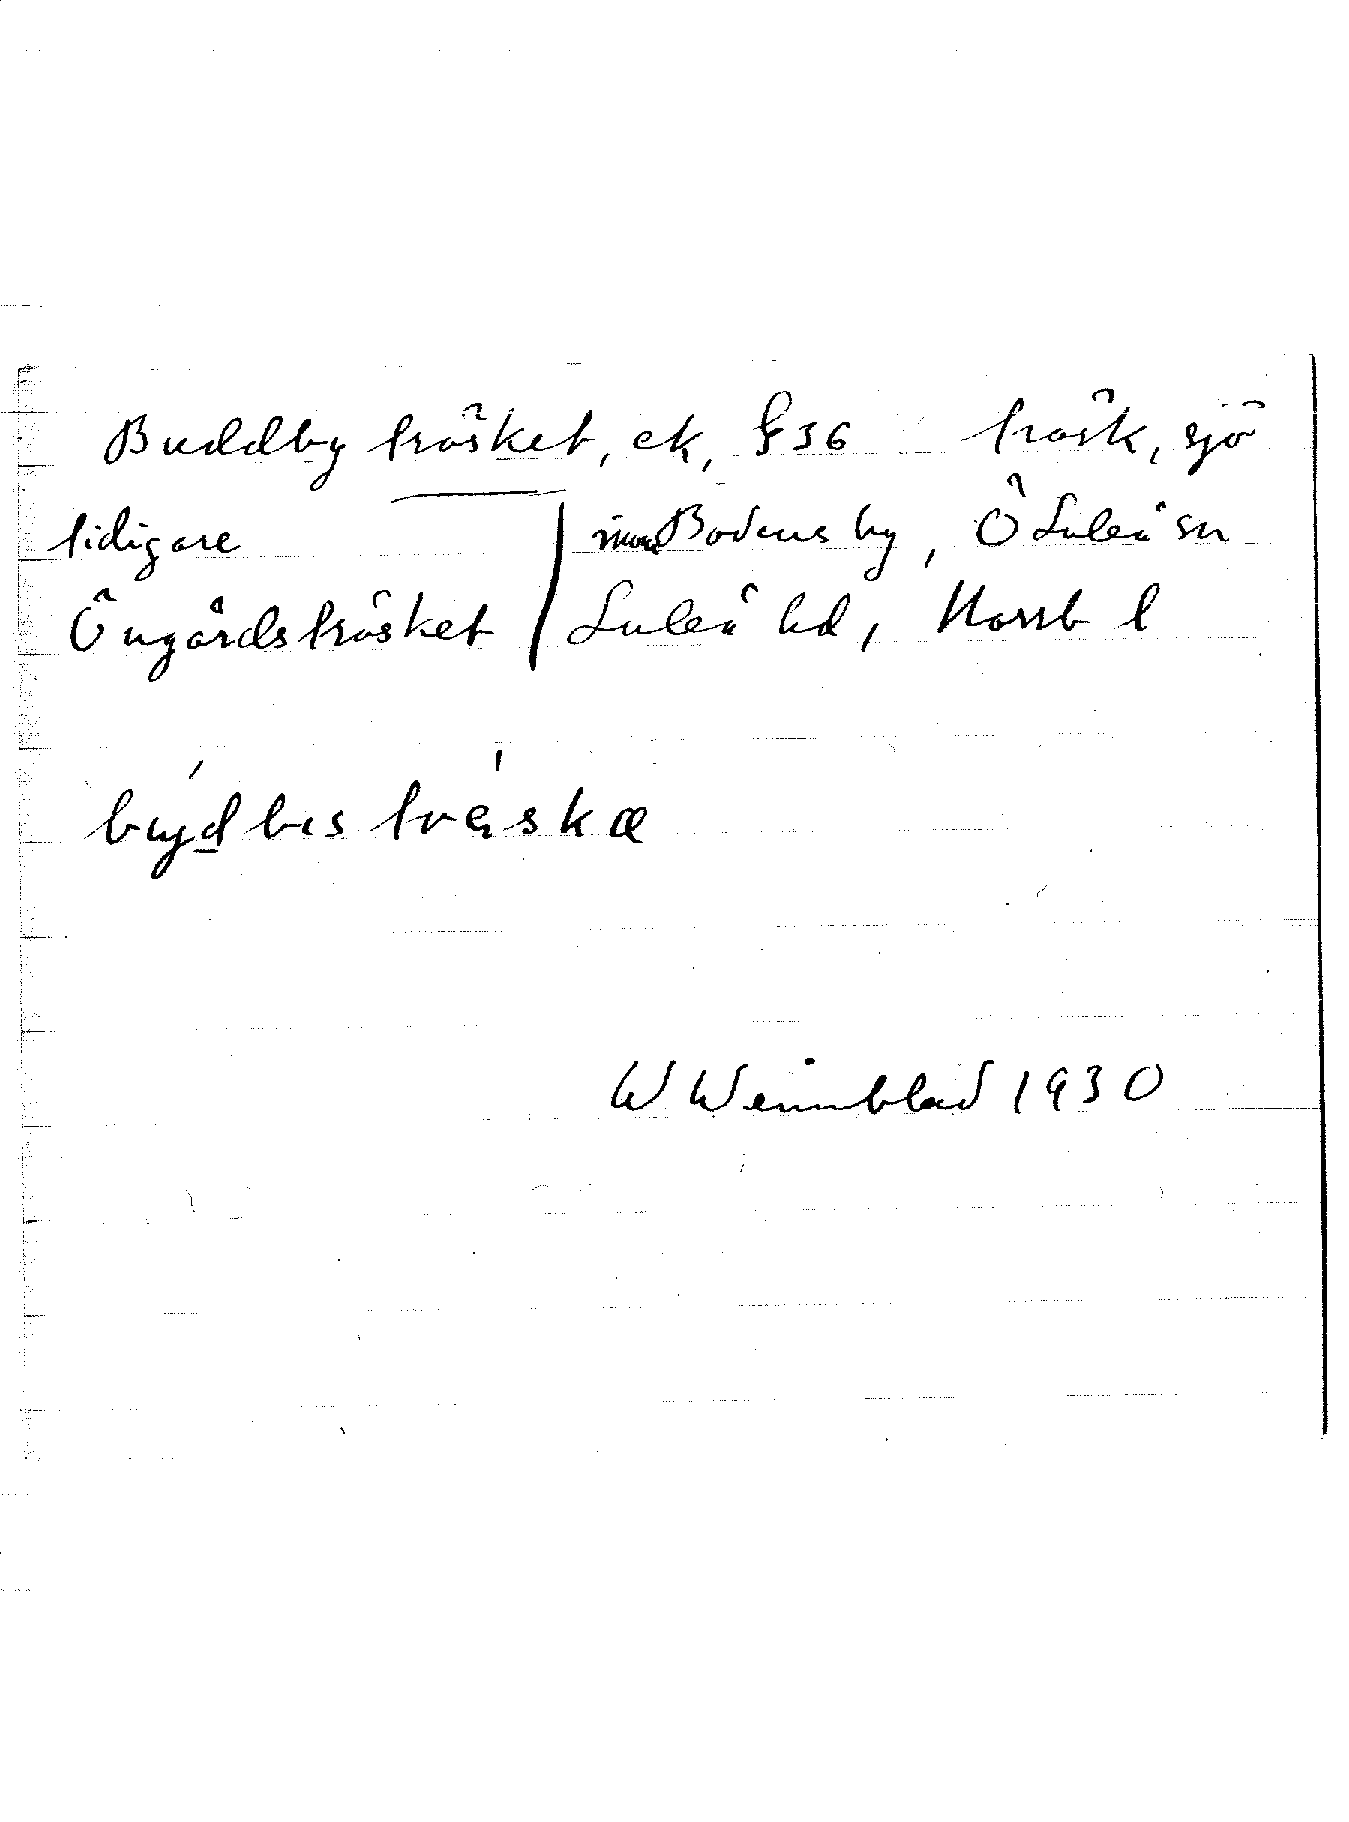 Buddbyträsket, ek, § 36 träsk, sjö
tidigare
Öngårdsträsket
inom Bodens by, Ö Luleå sn
Luleå hd, Norrb l
W Wennblad 1930